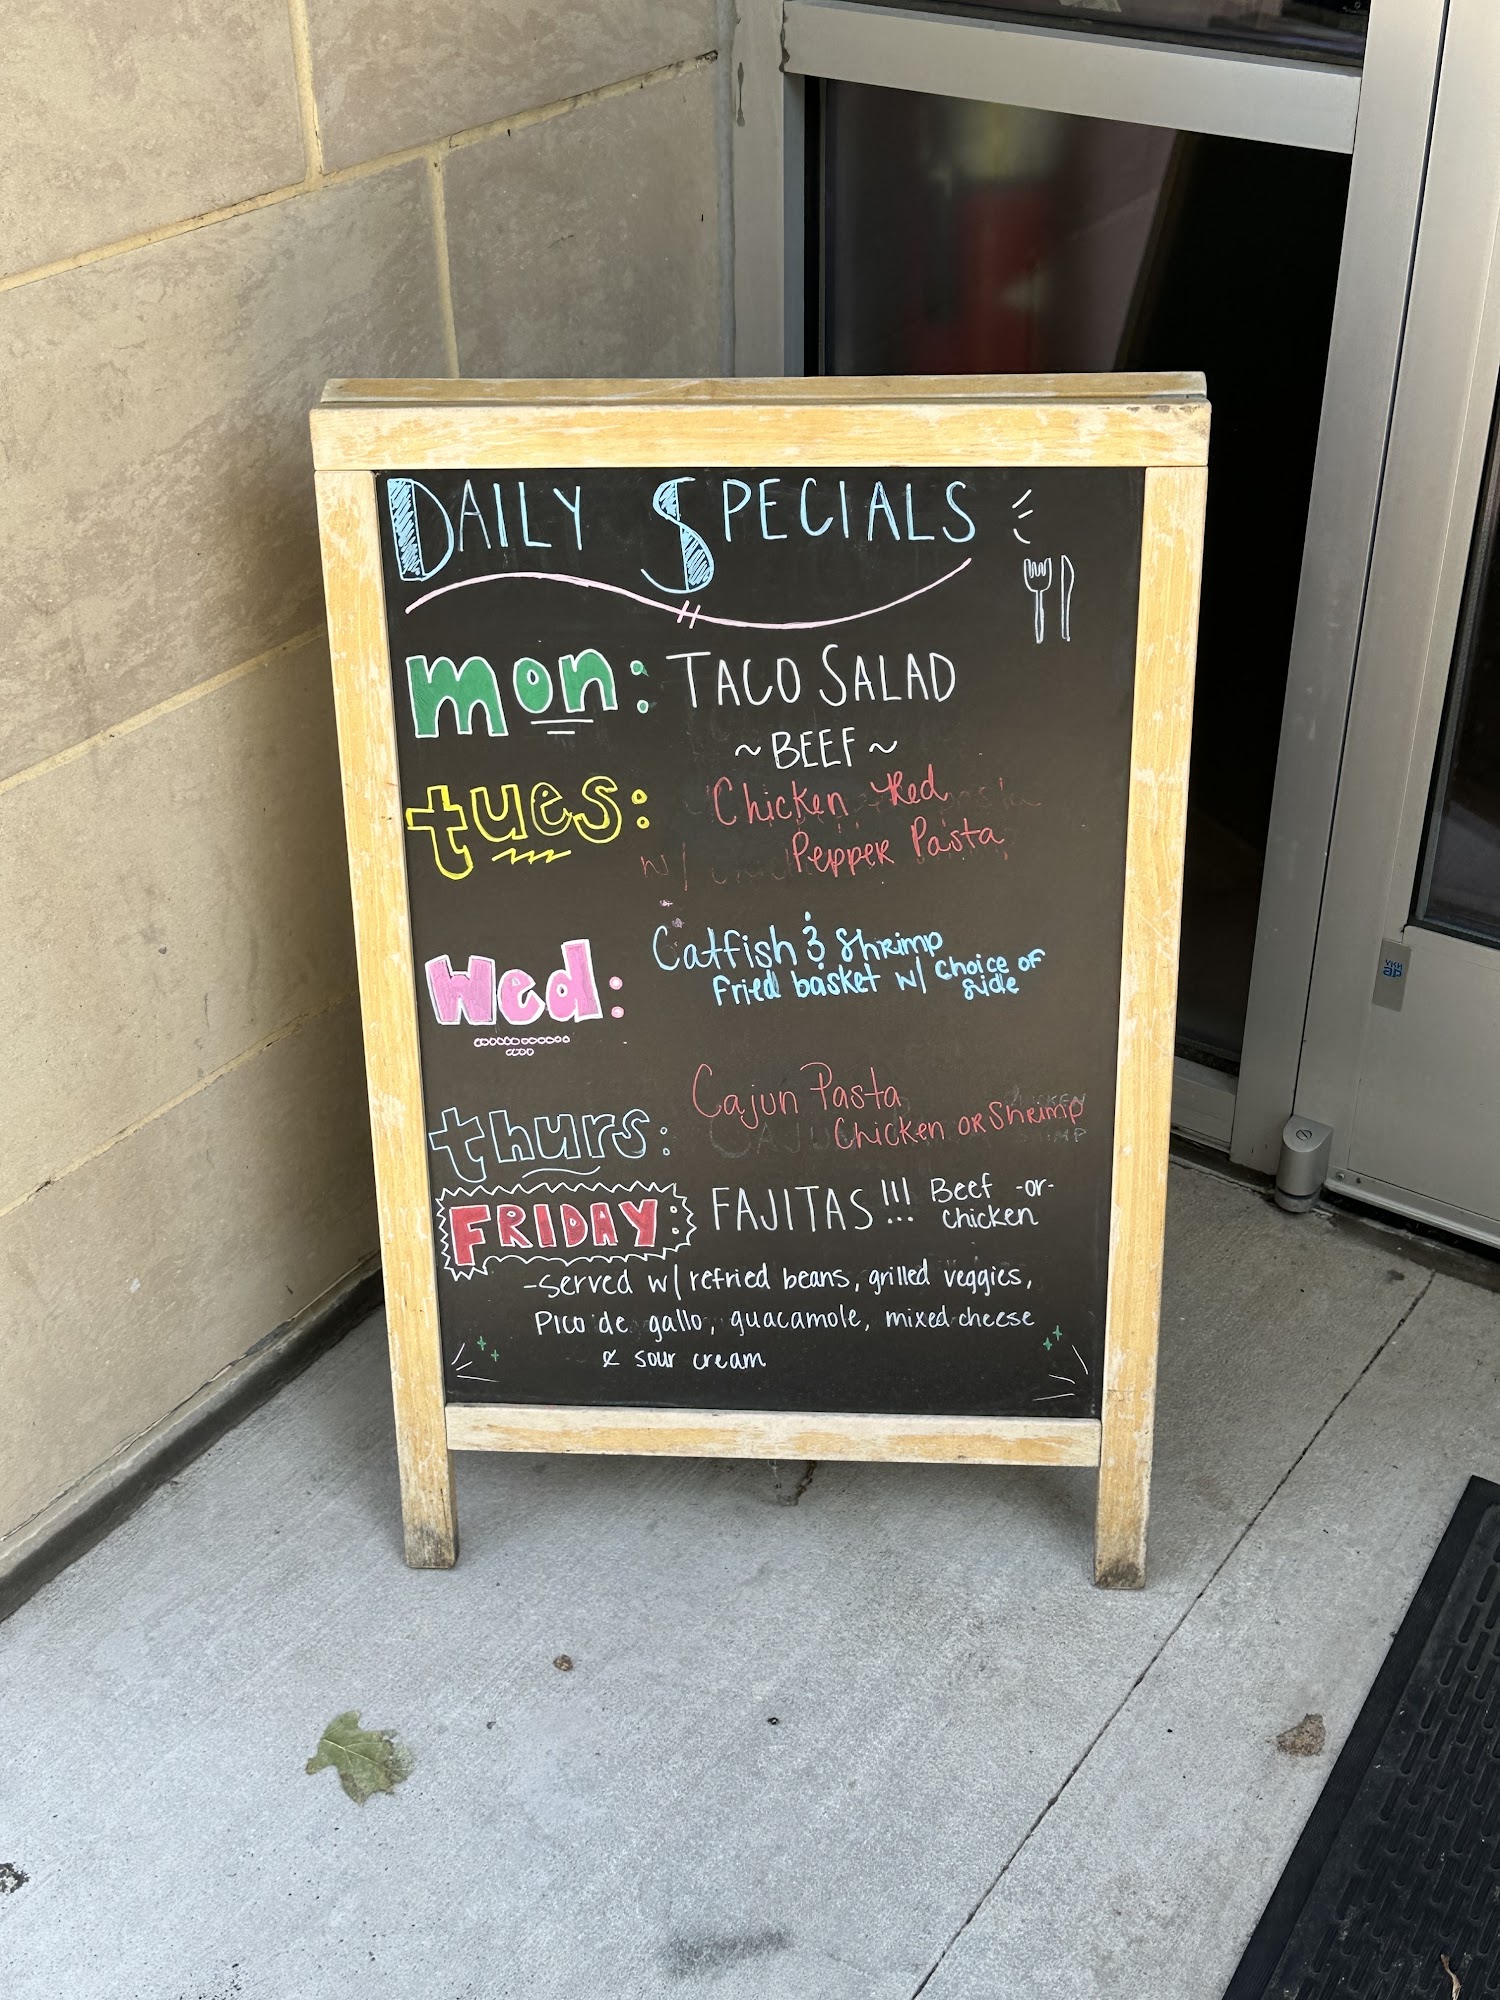 DAILY SPECIALS
mon: TACO SALAD
~BEEF~
tues: Chicken Red
w/ Pepper Pasta
Wed: Catfish & Shrimp
Fried basket w/ Choice of
side
thurs: Cajun Pasta
Chicken or Shrimp
FRIDAY: FAJITAS!!! Beef -or-
chicken
-served w/ refried beans, grilled veggies,
Pico de gallo, guacamole, mixed cheese
& sour cream